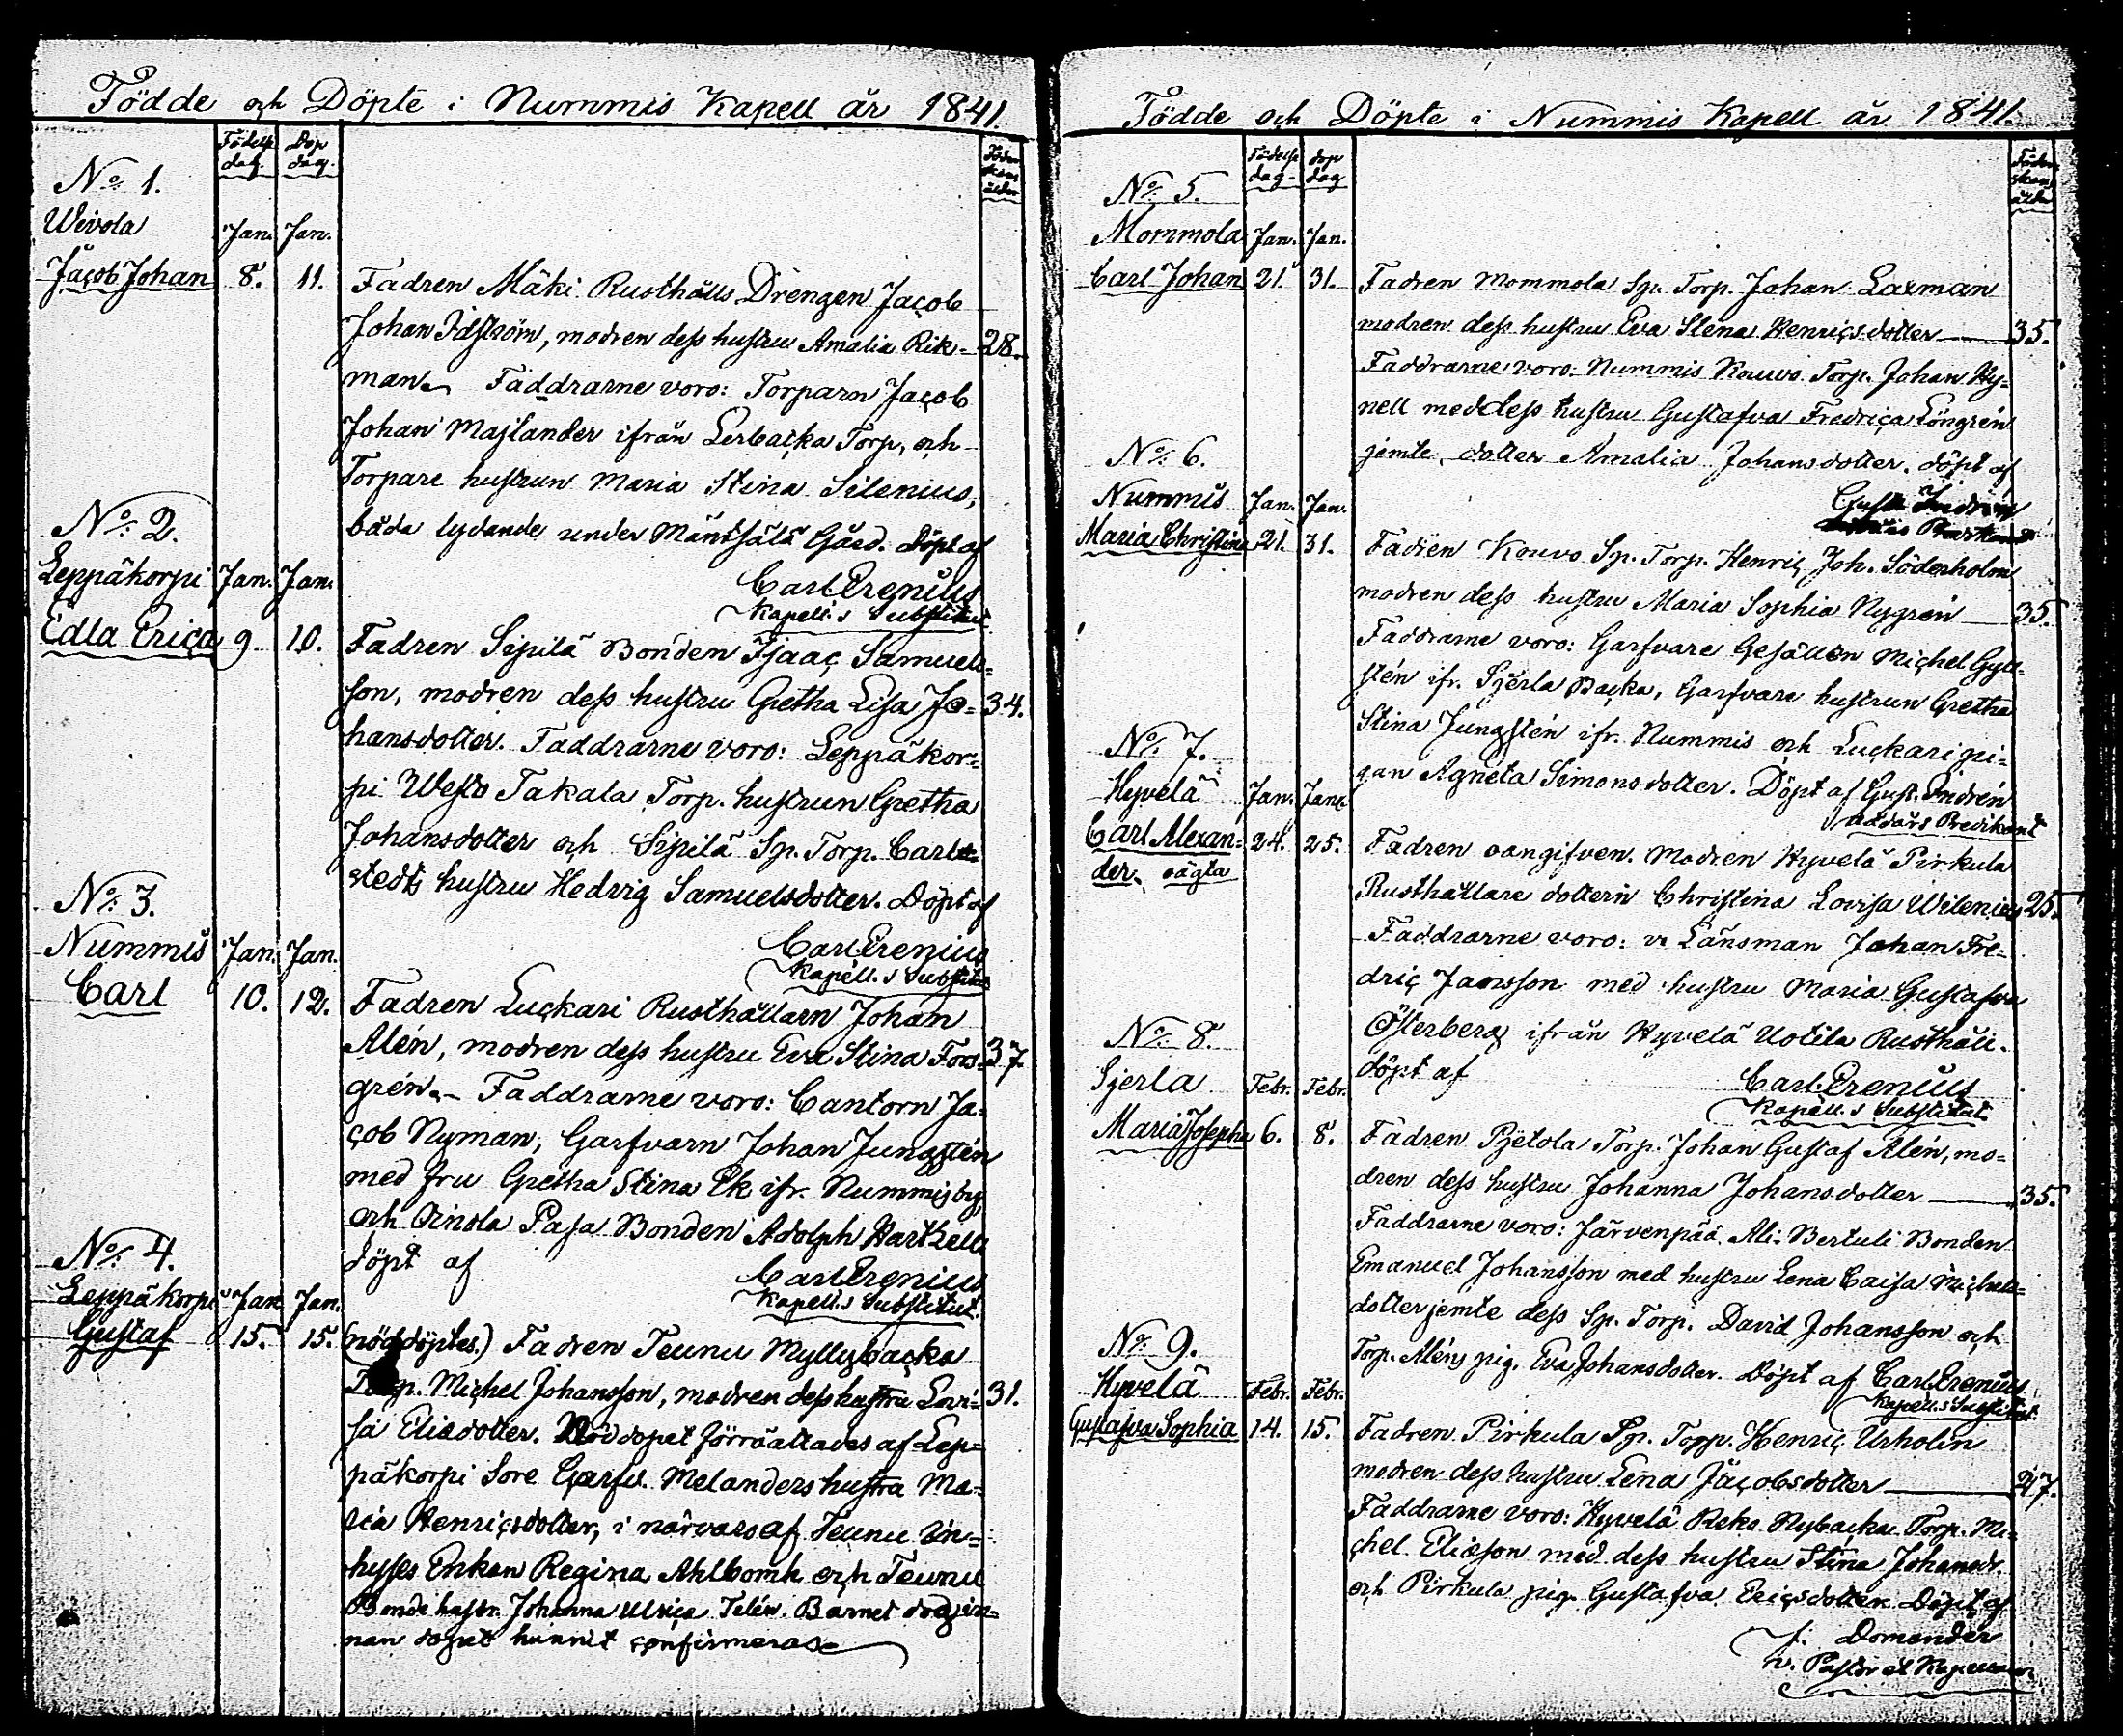 Födde och Döpte i Nummis Kapell år 1841.
Födelse dag. Döp dag. Föder skans ålder
No: 1.
Wivola Jan. Jan.
Jacob Johan 8. 11. Fadren Mäki Rusthålls Drengen Jacob
Johan Idström, modren dess hustru Amalia Rik= 28.
man. Faddrarne voro: Torparn Jacob
Johan Majlander ifrån Lerbacka Torp, och
Torpare hustrun Maria Stina Silenius,
båda lydande under Mäntsälä Gård. Döpt af
Carl Erenius
Kapell:s Substitut.
No: 2.
Leppäkorpi Jan. Jan.
Edla Erica 9. 10. Fadren Sipilä Bonden Isaac Samuels=
son, modren dess hustru Gretha Lisa Jo= 34.
hansdotter. Faddrarne voro: Leppäkor=
pi Westo Takala Torp. hustrun Gretha
Johansdotter och Sipilä Sp. Torp. Carl
stedts hustru Hedvig Samuelsdotter. Döpt af
Carl Erenius
Kapell.s Substitut
No: 3.
Nummis Jan. Jan.
Carl 10. 12. Fadren Luckari Rusthållarn Johan
Alén, modren dess hustru Eva Stina Fors= 37.
grén. – Faddrarne voro: Cantorn Ja=
cob Nyman, Garfvarn Johan Jungstén
med fru Gretha Stina Ek ifr. Nummis by,
och Oinola Pasa Bonden Adolph Hartzell
döpt af Carl Erenius
Kapell.s Substitut.
No: 4.
Leppäkorpi Jan. Jan.
Gustaf 15. 15. (nöddöptes.) Fadren Teunu Myllybacka
Torp. Michel Johansson, modren dess hustru Lovi= 31.
sa Eliedotter. Nöddopet förrättades af Lep=
päkorpi Sore Garfv. Melanders hustru Ma=
ria Henricsdotter, i närvaro af Teunu in=
hyses Enkan Regina Ahlbomh och Teunu
Bonde hustr. Johanna Ulrica Telén. Barnet dog in=
nan dopet hunnit confirmeras.
Födde och Döpte i Nummis Kapell år 1841.
Födelse dag. dop dag Föder skans ålder
No: 5.
Mommola Jan. Jan.
Carl Johan 21. 31. Fadren Mommola Sp. Torp. Johan Laxman
modren dess hustru Eva Stena Henricsdotter 35.
Faddrarne voro: Nummis Kouvo Torp. Johan Hy=
nell med dess hustru Gustafva Fredrica Löngrén
jemte dotter Amalia Johansdotter. döpt af
Gust. Indrén
No: 6.
Nummis Jan. Jan.
Maria Christina 21. 31. Fadren Kouvo Sp. Torp. Henric Joh. Söderholm
modren dess hustru Maria Sophia Nygrén 35.
Faddrarne voro: Garfvare Gesällen Michel Gyll=
stén ifr. Sjerla Backa, Garfvare hustrun Gretha
Stina Jungstén ifr. Nummis och Luckari pi=
gan Agneta Simonsdotter. Döpt af Gust. Indrén
Adders Predikant
No: 7.
Hyvelä Jan. Jan.
Carl Alexan= 24. 25. Fadren oangifven. Modren Hyvelä Pirkula
der. oägta Rusthållare dottern Christina Lovisa Wilenius 25.
Faddrarne voro: v. Länsman Johan Fre=
dric Jansson med hustru Maria Gustafva
Österberg ifrån Hyvelä Uotila Rusthåll.
döpt af Carl Erenius
Kapell.s Substitut
No: 8.
Sjerla Febr. Febr.
Maria Josepha 6. 8. Fadren Pjetola Torp. Johan Gustaf Alén, mo=
dren dess hustru Johanna Johansdotter 35.
Faddrarne voro: Järvenpää Ali-Bertuli Bonden
Emanuel Johansson med hustru Lena Caisa Michels=
dotter jemte dess Sp. Torp. David Johansson och
Torp. Aléns pig. Eva Johansdotter. Döpt af Carl Erenius
Kapell.s Substitut.
No: 9.
Hyvelä Febr. Febr.
Gustafva Sophia 14. 15. Fadren Pirkula Sp. Torp. Henric Urholin
modren dess hustru Lena Jacobsdotter 27.
Faddrarne voro: Hyvelä Reko Nybacka Torp. Mi=
chel Eliasson med dess hustru Stina Johansdr.
och Pirkula pig. Gustafva Ericsdotter. Döpt af
J. Domander
v. Pastor et Kapellan